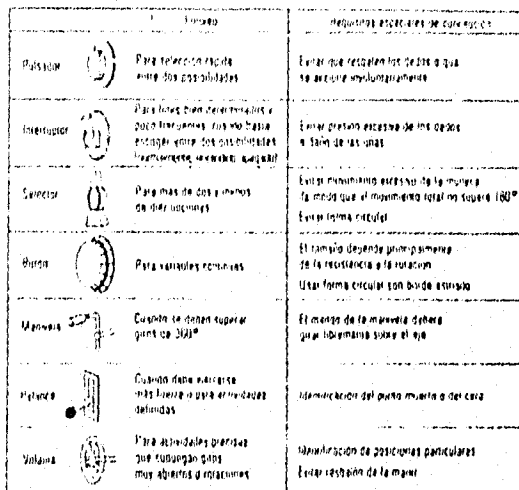 Empleo
Requisitos especiales de concepción
Pulsador
Para selección rápida
entre dos posibilidades
Evitar que resbalen los dedos o que
se accione involuntariamente
Interruptor
Para fines bien determinados y
poco frecuentes cuando basta
escoger entre dos posibilidades
encendido apagado
Evitar presión excesiva de los dedos
o daño de las uñas
Selector
Para más de dos y menos
de diez opciones
Evitar movimiento excesivo de la muñeca
de modo que el movimiento total no supere 180°
Evitar forma circular
Botón
Para variables continuas
El tamaño depende principalmente
de la resistencia a la rotación
Usar forma circular con borde estriado
Manivela
Cuando se deben superar
giros de 360°
El mango de la manivela deberá
girar libremente sobre el eje
Palanca
Cuando debe ejercerse
más fuerza o para actividades
definidas
Identificación del punto muerto o del cero
Volante
Para actividades precisas
que supongan giros
muy abiertos o rotaciones
Identificación de posiciones particulares
Evitar resbalón de la mano